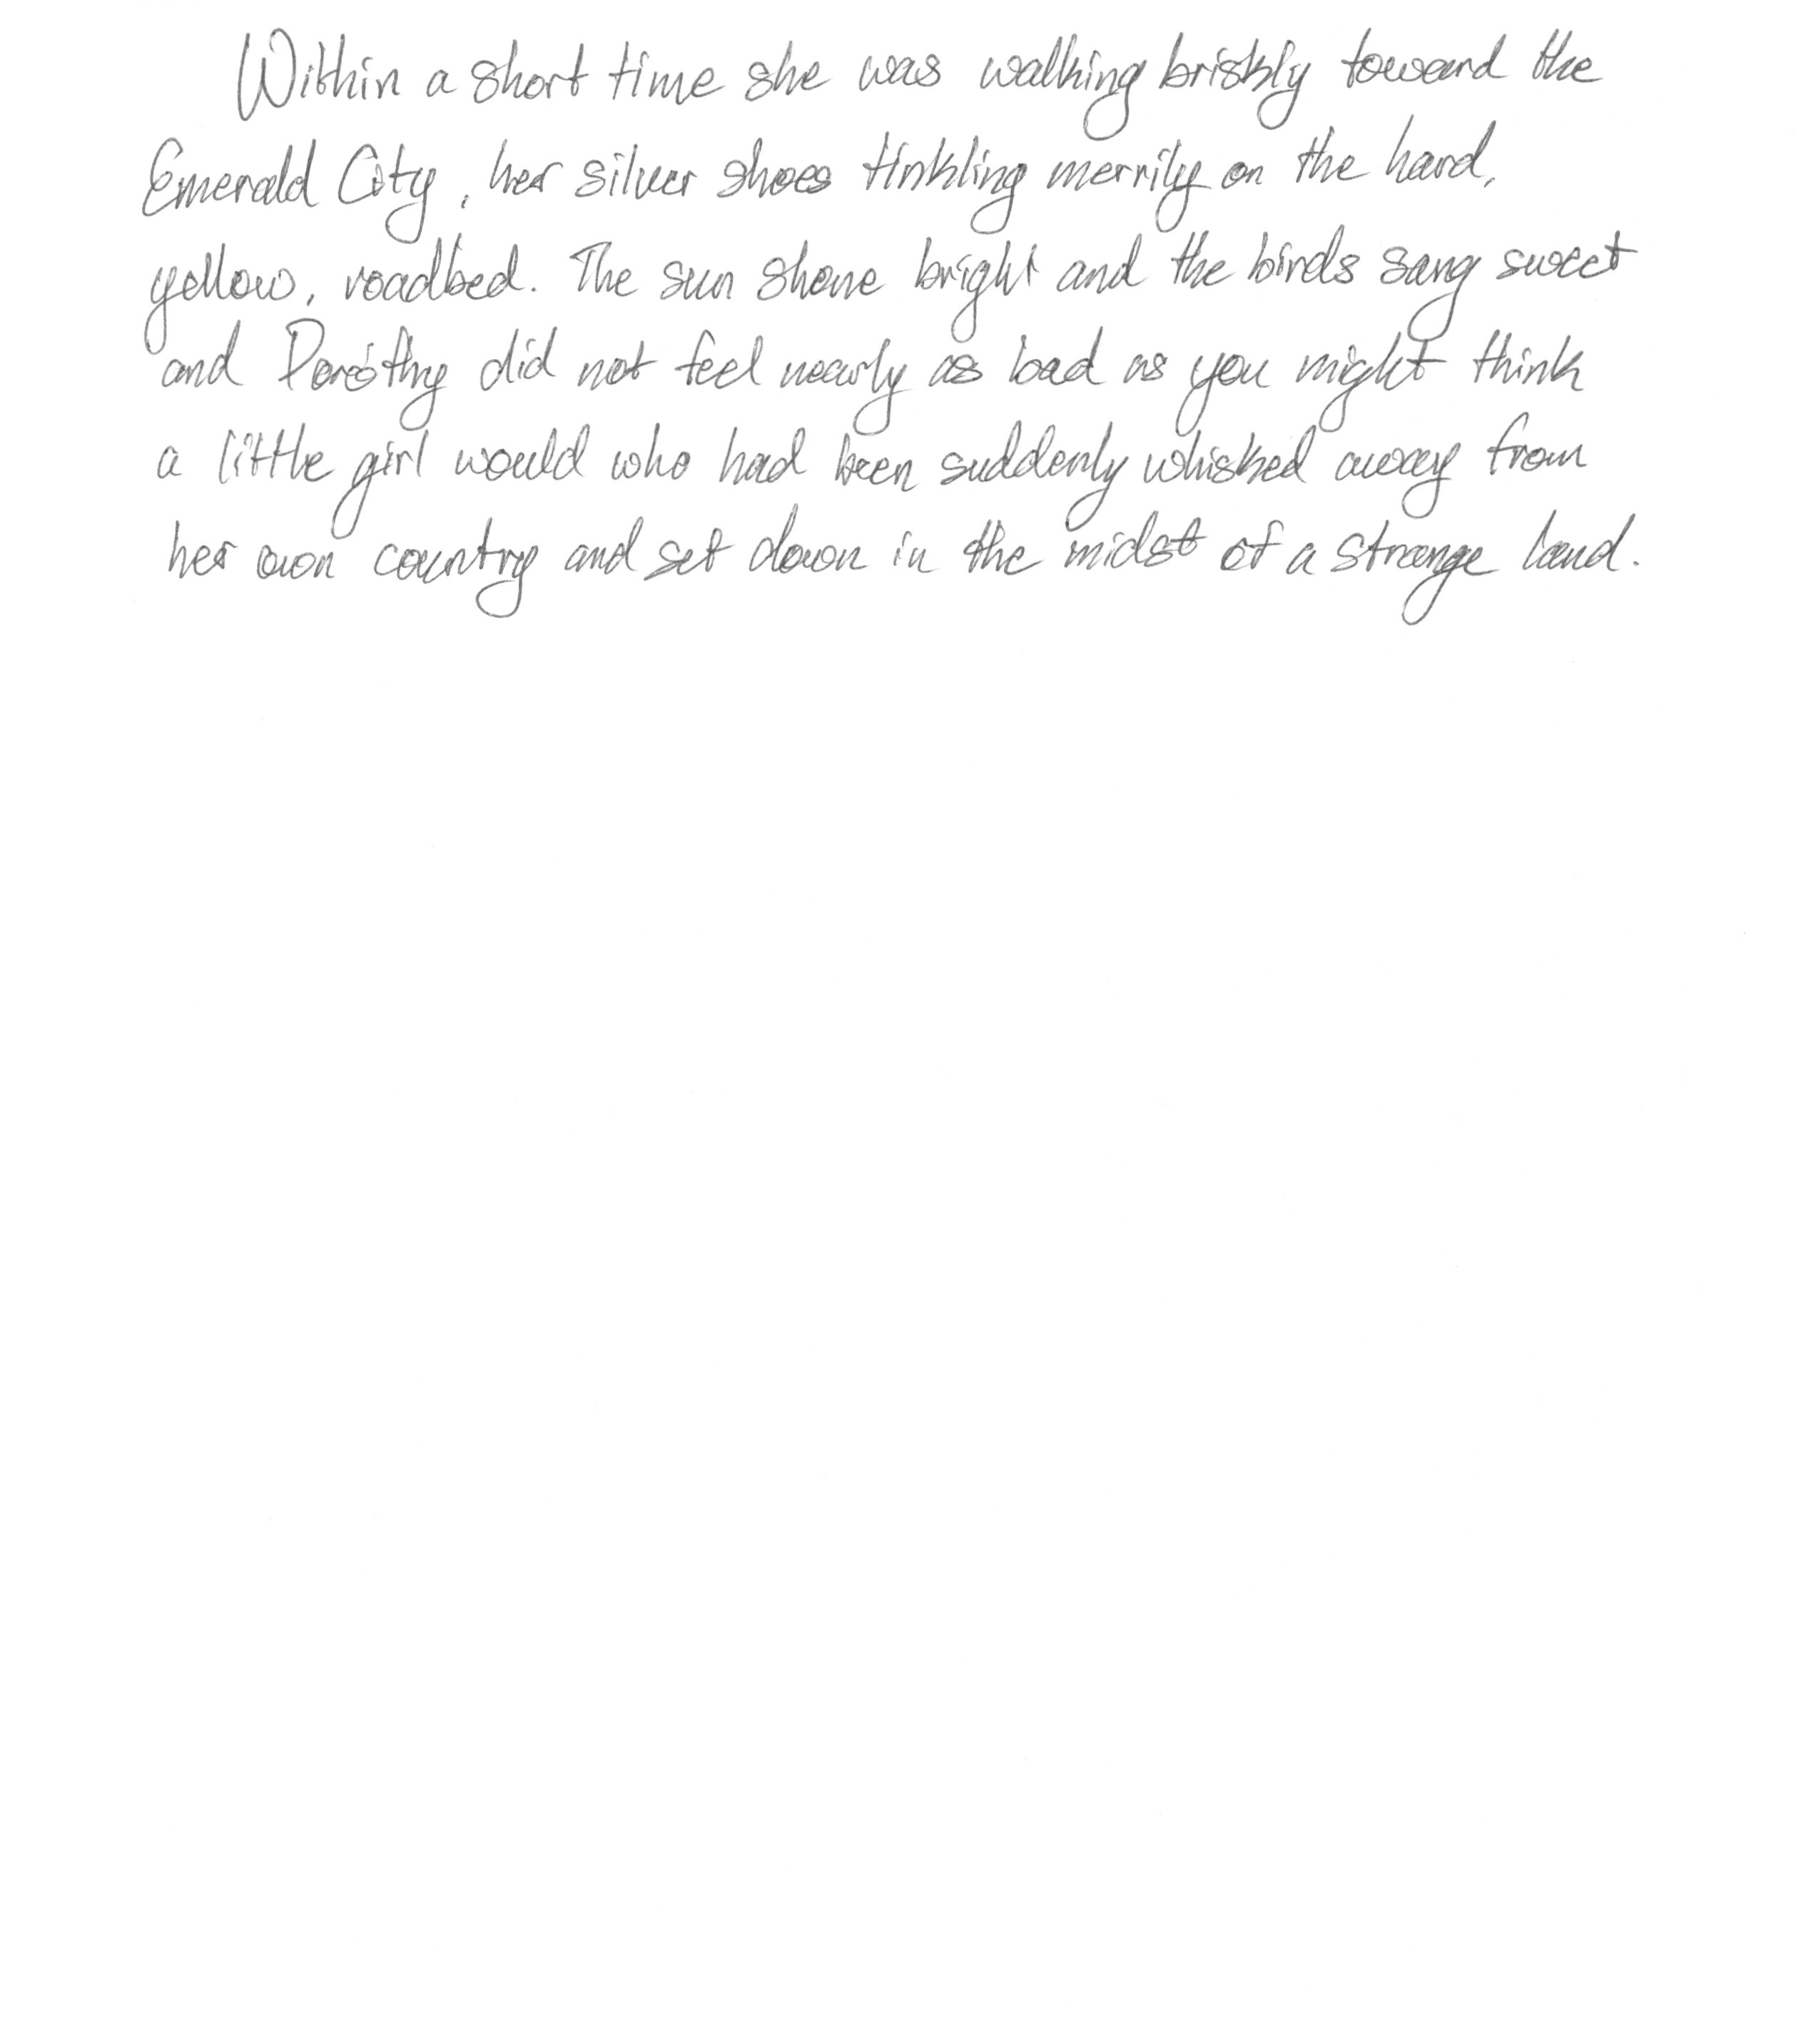 Within a short time she was walking briskly toward the
Emerald City, her silver shoes tinkling merrily on the hard,
yellow, roadbed. The sun shone bright and the birds sang sweet
and Dorothy did not feel nearly as bad as you might think
a little girl would who had been suddenly whisked away from
her own country and set down in the midst of a strange land.